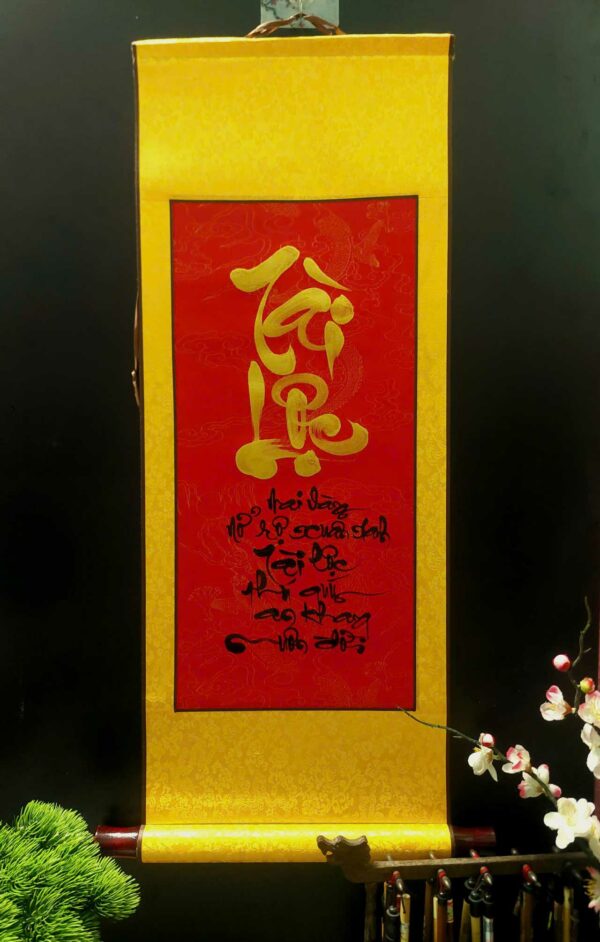 Tài
Lộc
Mai vàng
nở rộ xuân sang
Tài lộc
phú quý
an khang
muôn đời